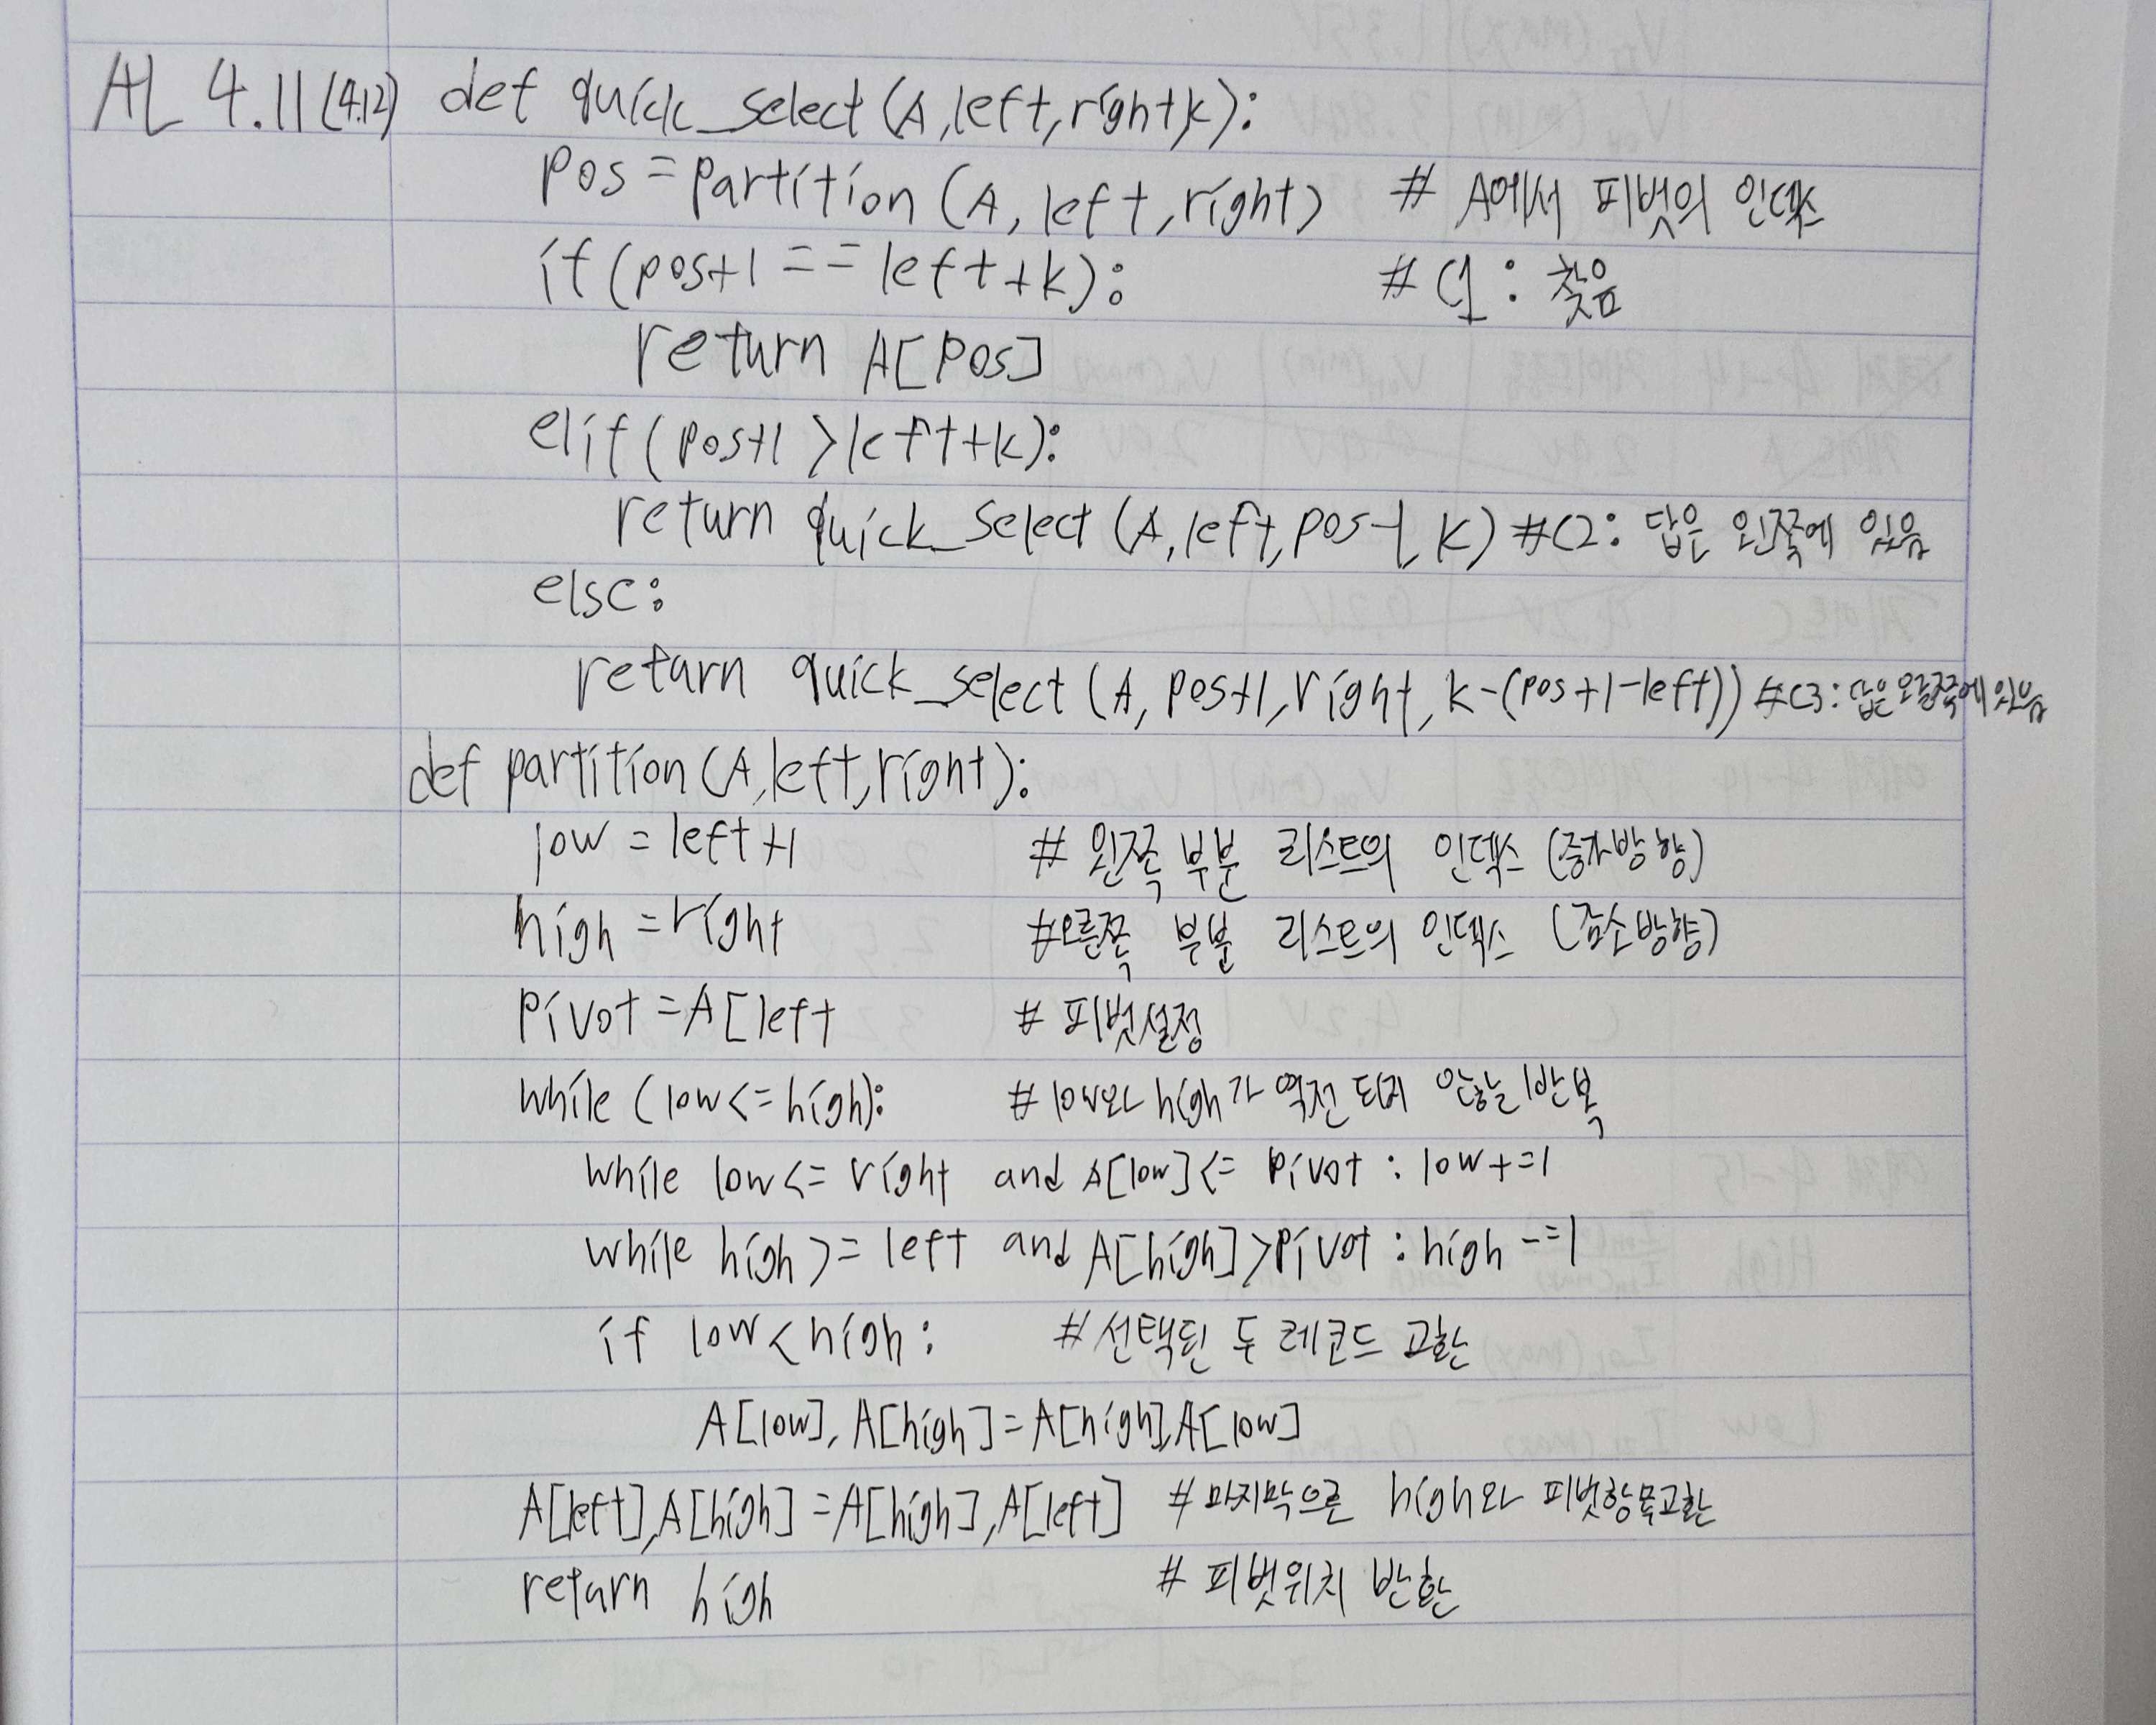 AL 4.11(4.12) def quick_select(A,left,right,k):
pos=partition(A,left,right) # A에서 피벗의 인덱스
if(pos+1==left+k): #C1: 찾음
return A[pos]
elif(pos+1>left+k):
return quick_select(A,left,pos-1,k) #C2: 답은 왼쪽에 있음
else:
return quick_select(A,pos+1,right,k-(pos+1-left)) #C3: 답은 오른쪽에 있음
def partition(A,left,right):
low=left+1 # 왼쪽 부분 리스트의 인덱스 (증가방향)
high=right #오른쪽 부분 리스트의 인덱스 (감소방향)
pivot=A[left # 피벗설정
while(low<=high): #low와 high가 역전되지 않는 반복
while low<=right and A[low]<=pivot:low+=1
while high>=left and A[high]>pivot:high-=1
if low<high: #선택된 두 레코드 교환
A[low],A[high]=A[high],A[low]
A[left],A[high]=A[high],A[left] #마지막으로 high와 피벗항목교환
return high #피벗위치 반환